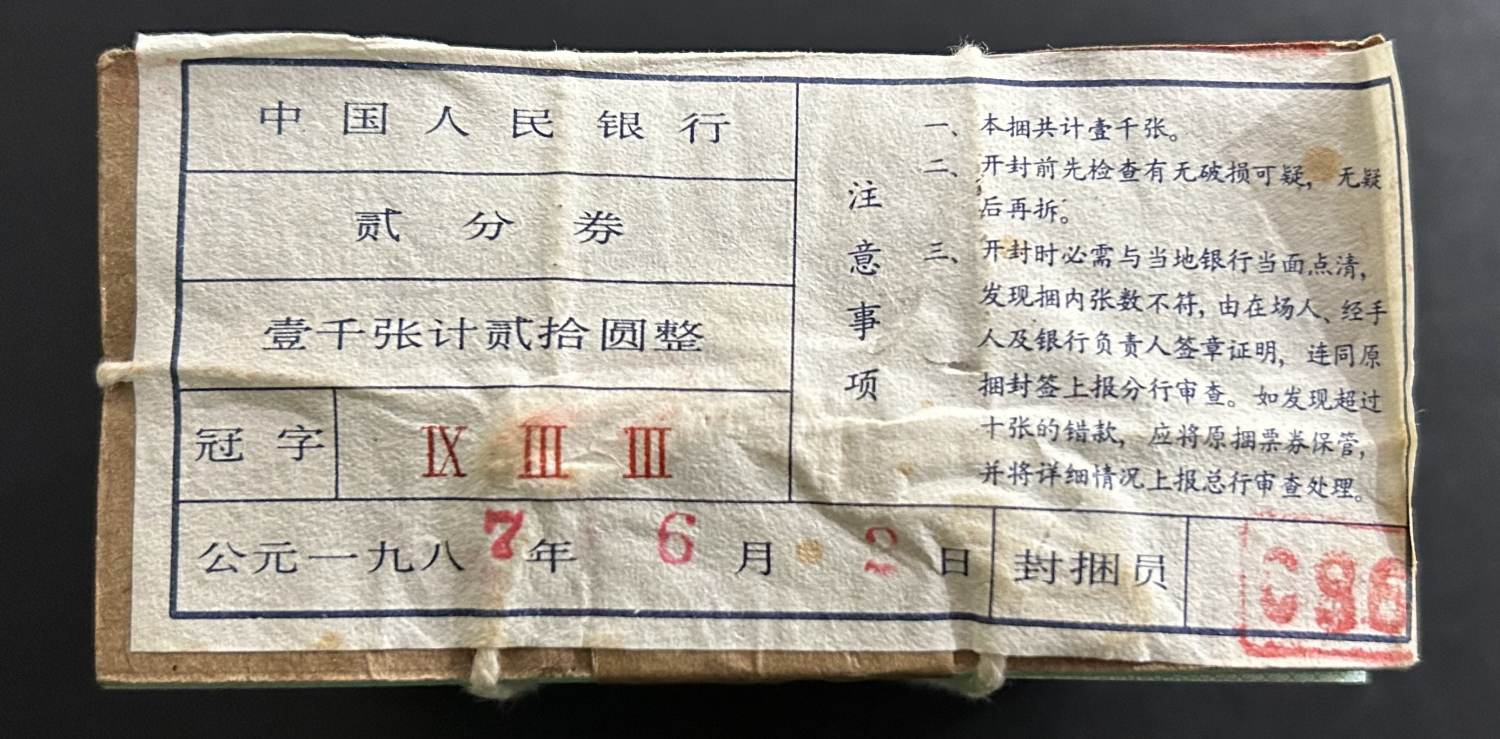 中国人民银行
贰分券
壹千张计贰拾圆整
冠字 ⅠⅩ ⅠⅠⅠ ⅠⅠⅠ
注意事项
一、本捆共计壹千张。
二、开封前先检查有无破损可疑，无疑
后再拆。
三、开封时必需与当地银行当面点清，
发现捆内张数不符，由在场人、经手
人及银行负责人签章证明，连同原
捆封签上报分行审查。如发现超过
十张的错款，应将原捆票券保管，
并将详细情况上报总行审查处理。
公元一九八7年 6月 2日 封捆员